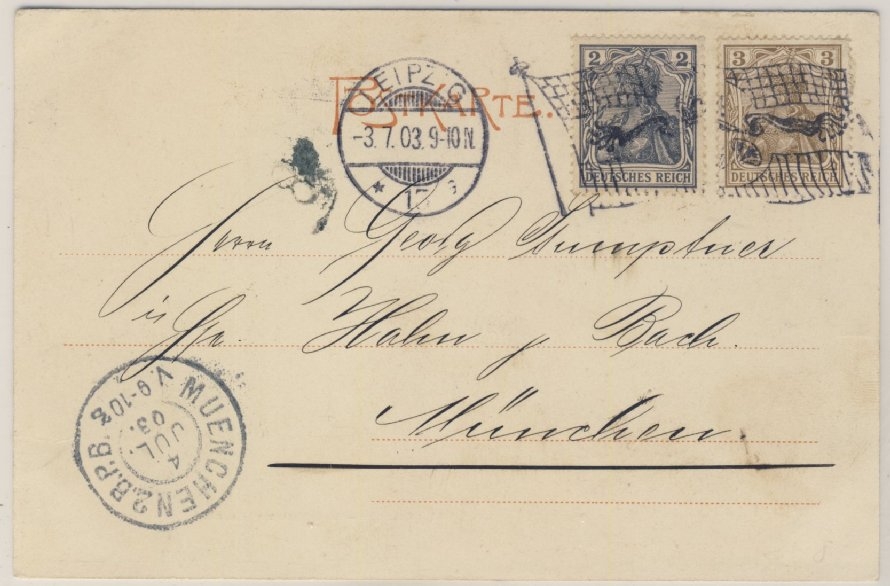 POSTKARTE.
LEIPZIG
-3.7.03. 9-10 N.
* 13
2
DEUTSCHES REICH
3
DEUTSCHES REICH
Herrn Georg Gumptner
i/ Fa. Hahn & Bach.
München.
MUENCHEN 2.B.P.B.
V. 9-10
4
JUL.
03.